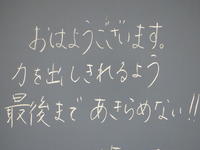 おはようございます。
力を出しきれるよう
最後まであきらめない!!